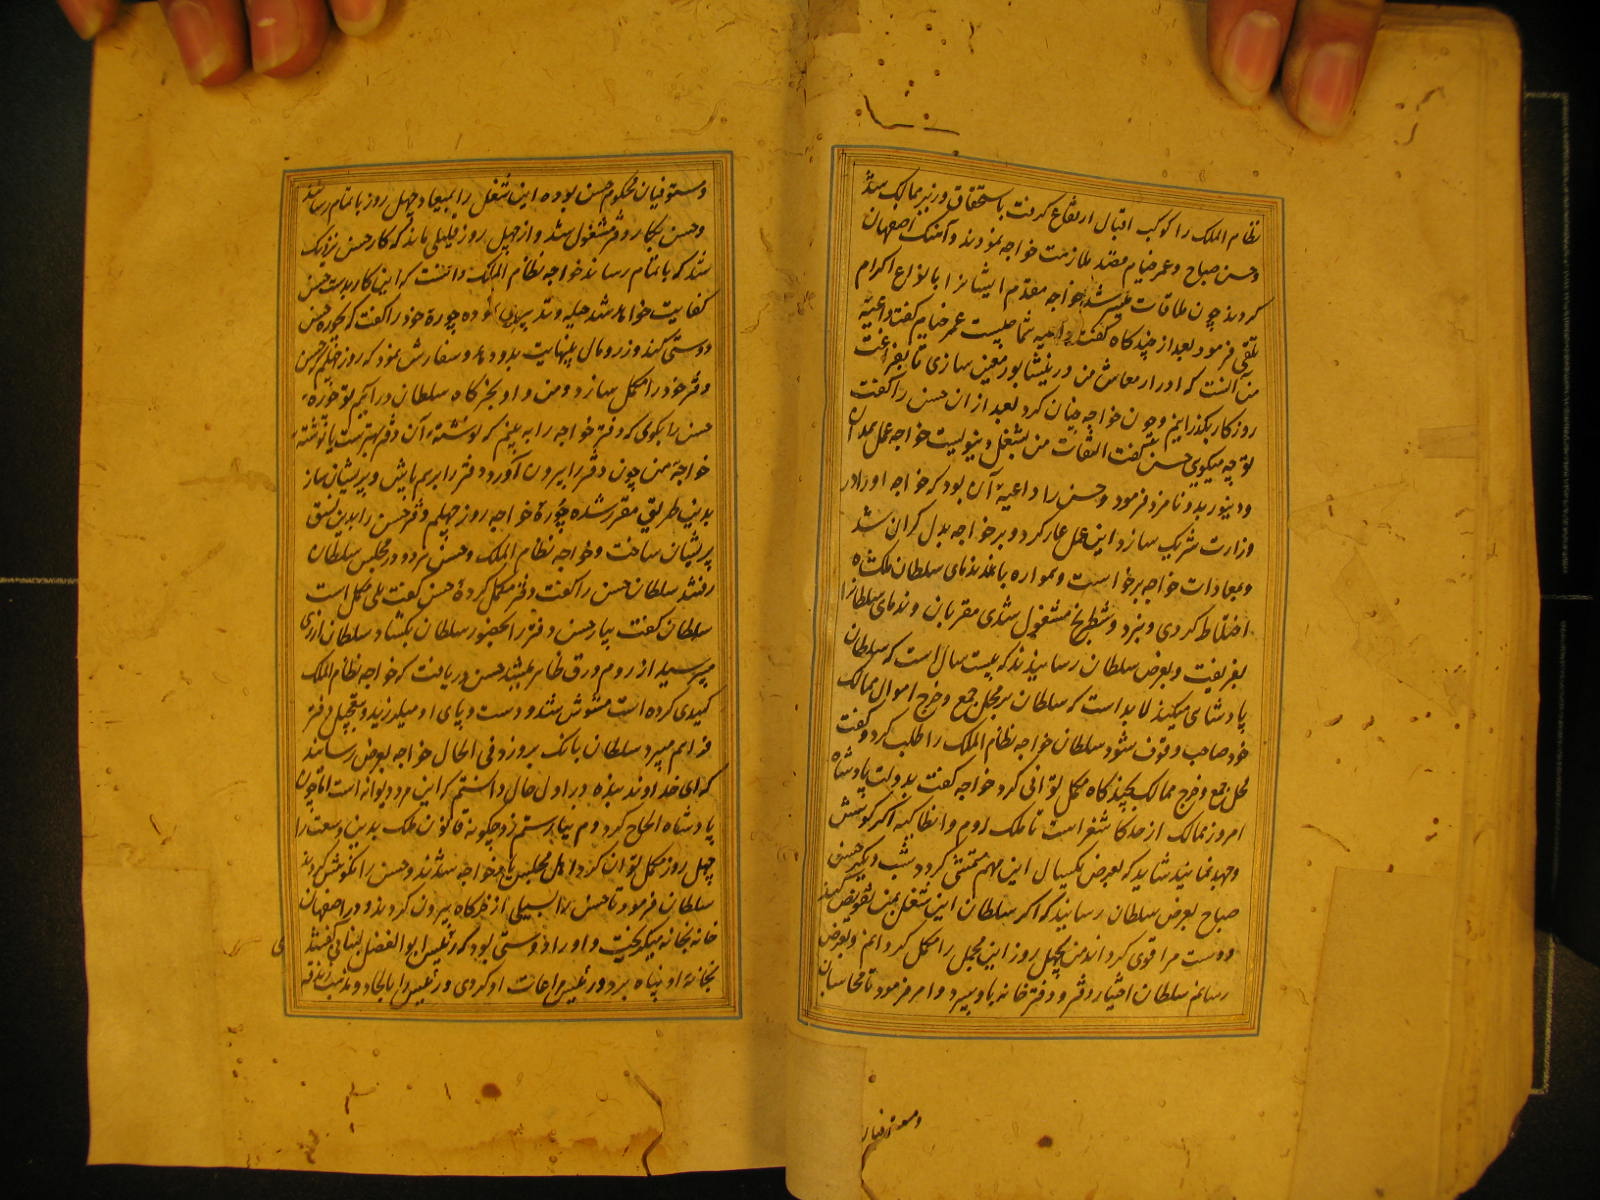 نظام الملک را کوکب اقبال ارتفاع کرفت باستحقاق وزیر ممالک شد
وحسن صباح وعمر خیام مقصد ملازمت خواجه نمودند وآهنک اصفهان
کردند چون ملاقات میسر شد خواجه مقدم ایشانرا بانواع اکرام
تلقی فرمود بعد از چند کاه کفت داعیه شما چیست عمر خیام کفت داعیهٔ
من آنست که ادرار معاش من در نیشابور معین سازی تا بفراغت
روزکار بکذرانیم وچون خواجه چنان کرد بعد از ان حسن را کفت
تو چه میکویی حسن کفت التفات من بشغل دنیویست خواجه عمل همدان
ودینور بدو نامزد فرمود وحسن را داعیهٔ آن بود که خواجه اورا در
وزارت شریک سازد ازین عمل عار کرد وبر خواجه بدل کران شد
وبمعادات خواجه برخواست وهمواره با ندمای سلطان ملکشاه
اختلاط کردی وبنرد وشطرنج مشغول شدی مقربان وندمای سلطانرا
بفریفت وبعرض سلطان رسانیدند که بیست سال است که سلطان
پادشاهی میکند لابد است که سلطان بر مجمل جمع وخرج اموال ممالک
خود صاحب وقوف شود سلطان خواجه نظام الملک را طلب کرد وکفت
مجمل جمع وخرج ممالک بچند کاه مکمل توانی کرد خواجه کفت بدولت پادشاه
امروز ممالک از حد کاشغر است تا ملک روم وانطاکیه اکر کوشش
وجهد نمایند شاید که بعرض یکسال این مهم متمشی کردد شب دیکر حسن
صباح بعرض سلطان رسانید که اکر سلطان این شغل بمن تفویض کند
ودست مرا قوی کرداند من بچهل روز این مجمل را مکمل کردانم وبعرض
رسانم سلطان اختیار دفتر ودفترخانه باو سپرد وامر فرمود تا محاسبان
ومستوفیان
ومستوفیان محکوم حسن بوده این شغل را بمیعاد چهل روز باتمام رساند
وحسن بکار دفتر مشغول شد واز چهل روز قلیلی ماند که کار حسن نزدیک
شد که باتمام رساند خواجه نظام الملک دانست که این کار بدست حسن
کفایت خواهد شد حیله وتدبیر چهرهٔ خود را کفت که بچهرهٔ حسن
دوستی کند وزر ومال بینهایت بدو دهد وسفارش نمود که روز چهلم حسن
دفتر خود را مکمل سازد ومن واو بخرکاه سلطان درآییم تو چهرهٔ
حسن را بکوی که دفتر خواجه را به بینم که نوشتهٔ آن دفتر بهتر است یا نوشتهٔ
خواجهٔ من چون دفتر را بیرون آورد دفتر را بر هم پاش وپریشان ساز
بدین طریق مقرر شده چهرهٔ خواجه روز چهلم دفتر حسن را بدین نسق
پریشان ساخت وخواجه نظام الملک وحسن هر دو در مجلس سلطان
رفتند سلطان حسن را کفت دفتر مکمل کردهٔ حسن کفت بلی مکمل است
سلطان کفت بیار حسن دفتر را بحضور سلطان بکشاد سلطان از ری
میپرسید از روم ورق ظاهر میشد حسن دریافت که خواجه نظام الملک
کیدی کرده است مشوش شد ودست وپای او میلرزید ومستعجل دفتر
فراهم میبرد سلطان بانک برو زد فی الحال خواجه بعرض رسانید
که ای خداوند بنده در اول حال دانستم که این مرد دیوانه است اما چون
پادشاه الحاح کرد دم نیارستم زد چکونه قانون ملک بدین وسعت را
چهل روز مکمل توان کرد اهل مجلس یار خواجه شدند وحسن را نکوهش کردند
سلطان فرمود تا حسن را بسیلی از خرکاه بیرون کردند ودر اصفهان
خانه بخانه میکریخت واورا دوستی بود که رئیس ابوالفضل لنبانی کفتندی
بخانهٔ او پناه برد ورئیس مراعات او کردی ورئیس را بالحاد وبمذهب زنادقه